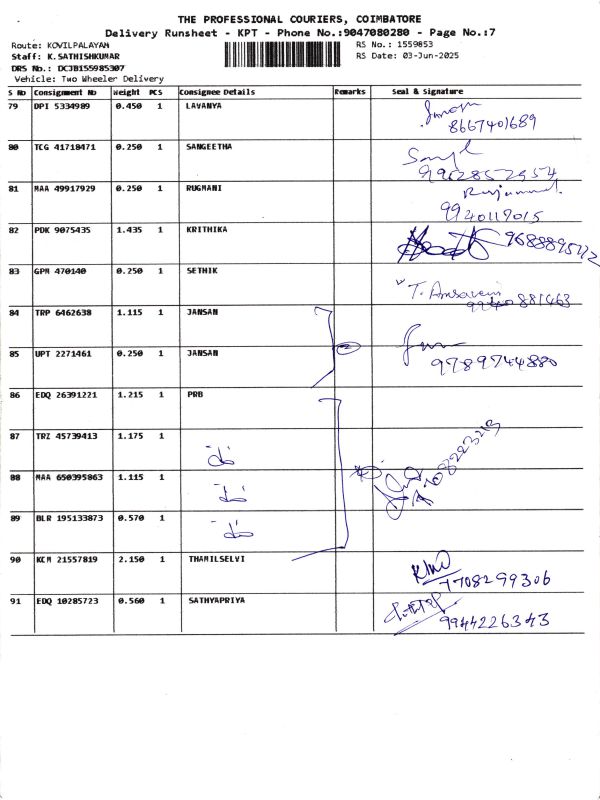 THE PROFESSIONAL COURIERS, COIMBATORE
Delivery Runsheet - KPT - Phone No.:9047080280 - Page No.:7
Route: KOVILPALAYAM RS No.: 1559853
Staff: K.SATHISHKUMAR RS Date: 03-Jun-2025
DRS No.: DCJB155985307
Vehicle: Two Wheeler Delivery
S No Consignment No Weight PCS Consignee Details Remarks Seal & Signature
79 DPI 5334989 0.450 1 LAVANYA
8667401689
80 TCG 41718471 0.250 1 SANGEETHA
9962852454
81 MAA 49917929 0.250 1 RUGMANI
9940117015
82 PDK 9075435 1.435 1 KRITHIKA
83 GPM 470140 0.250 1 SETHIK
84 TRP 6462638 1.115 1 JANSAN
85 UPT 2271461 0.250 1 JANSAN 2
9789744880
86 EDQ 26391221 1.215 1 PRB
87 TRZ 45739413 1.175 1
88 MAA 650395863 1.115 1
89 BLR 195133873 0.570 1
90 KCM 21557819 2.150 1 THAMILSELVI
7708299306
91 EDQ 10285723 0.560 1 SATHYAPRIYA
9944226343